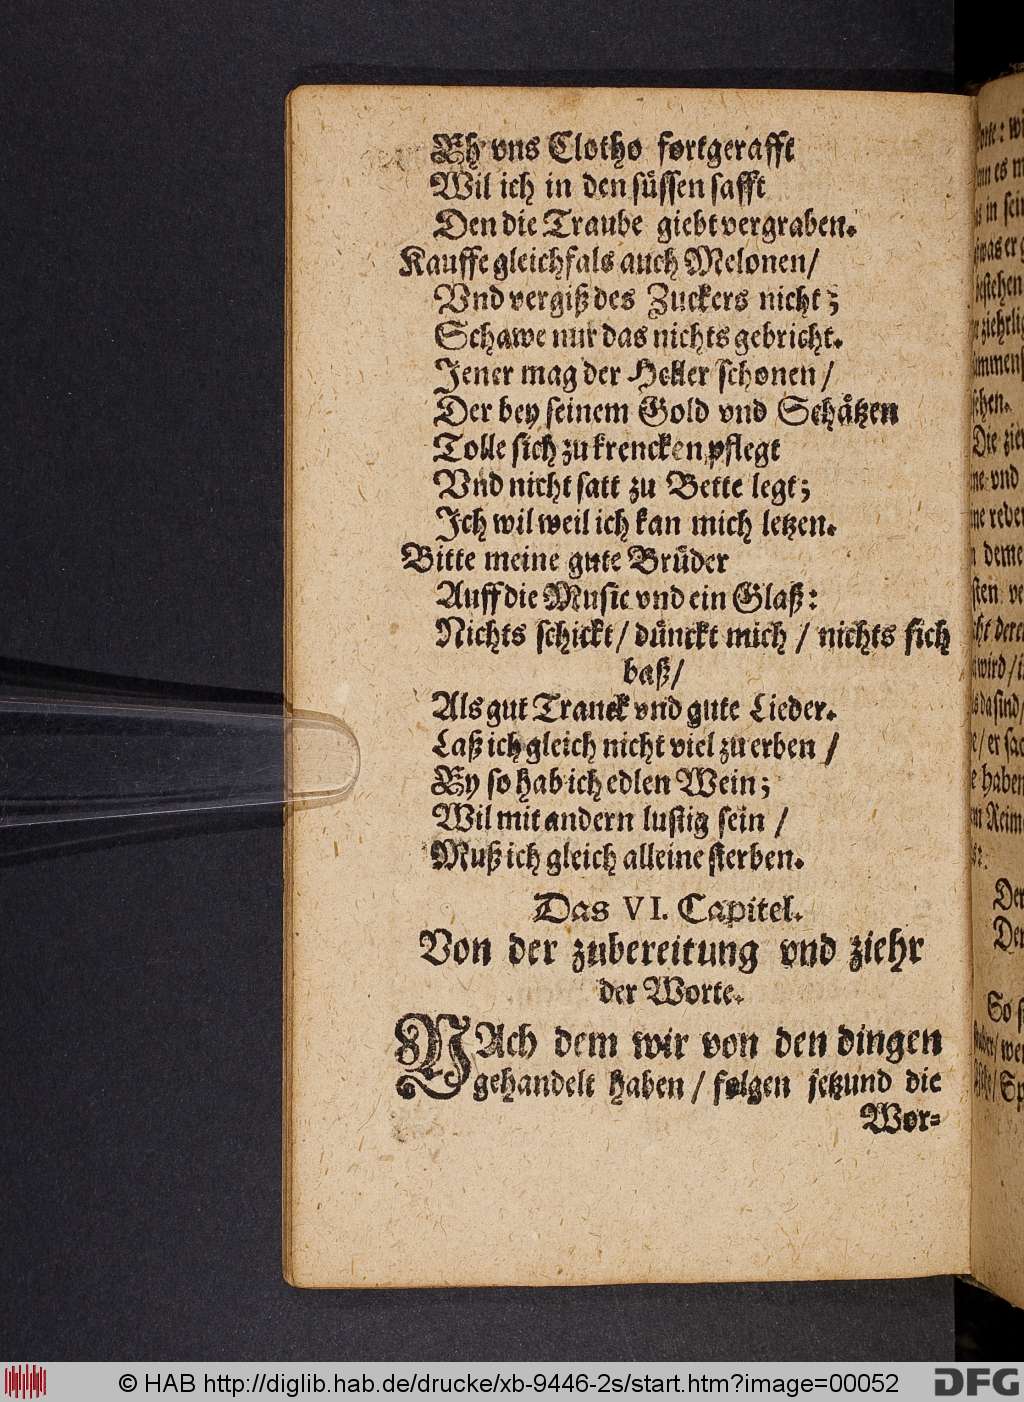 Eh vns Clotho fortgerafft
Wil ich in den süssen safft
Den die Traube giebt vergraben.
Kauffe gleichfals auch Melonen/
Vnd vergiß des Zuckers nicht;
Schawe nur das nichts gebricht.
Jener mag der Heller schonen/
Der bey seinem Gold vnd Schåtzen
Tolle sich zu krencken pflegt
Vnd nicht satt zu Bette legt;
Ich wil weil ich kan mich letzen.
Bitte meine gute Brüder
Auff die Music vnd ein Glaß:
Nichts schickt/ dünckt mich/ nichts sich
baß/
Als gut Tranck vnd gute Lieder.
Laß ich gleich nicht viel zu erben/
Ey so hab ich edlen Wein;
Wil mit andern lustig sein/
Muß ich gleich alleine sterben.
Das VI. Capitel.
Von der zubereitung vnd ziehr
der Worte.
NAch dem wir von den dingen
gehandelt haben/ folgen jetzund die
Wor-
© HAB http://diglib.hab.de/drucke/xb-9446-2s/start.htm?image=00052
DFG